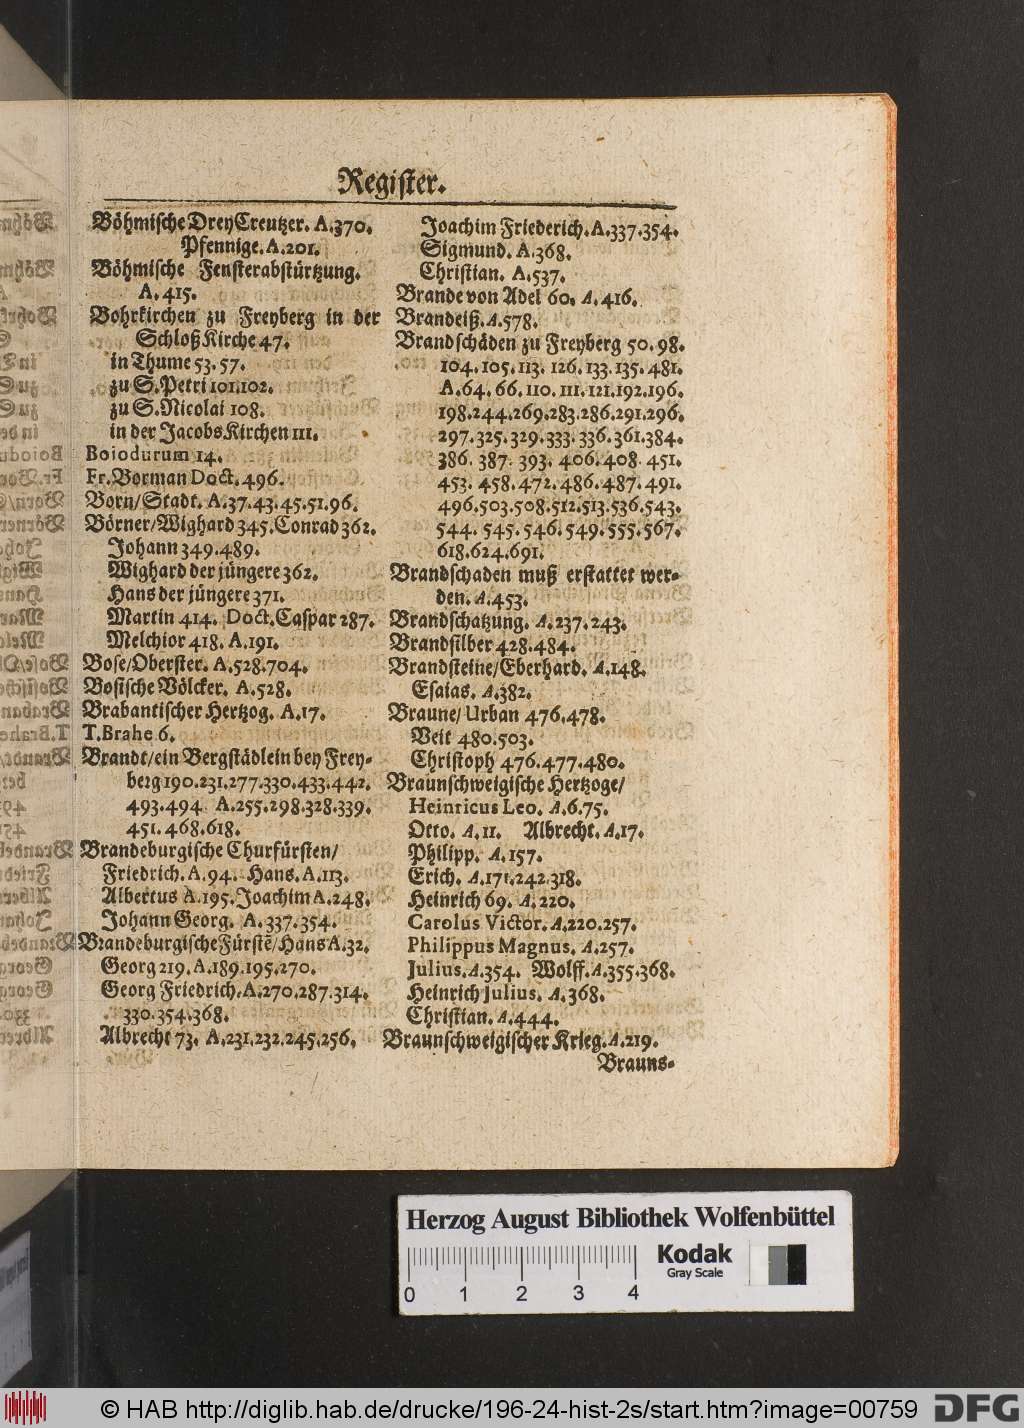 Register.
Böhmische Drey Creutzer. A.370.
Pfennige. A.201.
Böhmische Fensterabstürtzung.
A. 415.
Bohrkirchen zu Freyberg in der
Schloß Kirche 47.
in Thume 53. 57.
zu S. Petri 101.102.
zu S. Nicolai 108.
in der Jacobs Kirchen 111.
Boiodurum 14.
Fr. Borman Doct. 496.
Born/Stadt. A.37.43.45.51.96.
Börner/Wighard 345. Conrad 362.
Johann 349.489.
Wighard der jüngere 362.
Hans der jüngere 371.
Martin 414. Doct. Caspar 287.
Melchior 418. A.191.
Bose/Oberster. A.528.704.
Bosische Völcker. A.528.
Brabantischer Hertzog. A.17.
T. Brahe 6.
Brandt/ein Bergstädlein bey Frey-
berg 190.231.277.330.433.442.
493.494 A.255.298.328.339.
451.468.618.
Brandeburgische Churfürsten/
Friedrich. A.94. Hans. A.113.
Albertus A.195. Joachim A.248.
Johann Georg. A.337.354.
Brandeburgische Fürstẽ/Hans A.32.
Georg 219. A.189.195.270.
Georg Friedrich. A.270.287.314.
330.354.368.
Albrecht 73. A.231.232.245.256.
Joachim Friederich. A.337.354.
Sigmund. A.368.
Christian. A.537.
Brande von Adel 60. A.416.
Brandeiß. A.578.
Brandschäden zu Freyberg 50.98.
104.105.113.126.133.135.481.
A.64.66.110.111.121.192.196.
198.244.269.283.286.291.296.
297.325.329.333.336.361.384.
386.387.393.406.408.451.
453.458.472.486.487.491.
496.503.508.512.513.536.543.
544.545.546.549.555.567.
618.624.691.
Brandschaden muß erstattet wer-
den. A.453.
Brandschatzung. A.237.243.
Brandsilber 428.484.
Brandsteine/Eberhard. A.148.
Esaias. A.382.
Braune/Urban 476.478.
Veit 480.503.
Christoph 476.477.480.
Braunschweigische Hertzoge/
Heinricus Leo. A.6.75.
Otto. A.11. Albrecht. A.17.
Philipp. A.157.
Erich. A.171.242.318.
Heinrich 69. A.220.
Carolus Victor. A.220.257.
Philippus Magnus. A.257.
Julius. A.354. Wolff. A.355.368.
Heinrich Julius. A.368.
Christian. A.444.
Braunschweigischer Krieg. A.219.
Brauns-
Herzog August Bibliothek Wolfenbüttel
Kodak
Gray Scale
0 1 2 3 4
© HAB http://diglib.hab.de/drucke/196-24-hist-2s/start.htm?image=00759
DFG